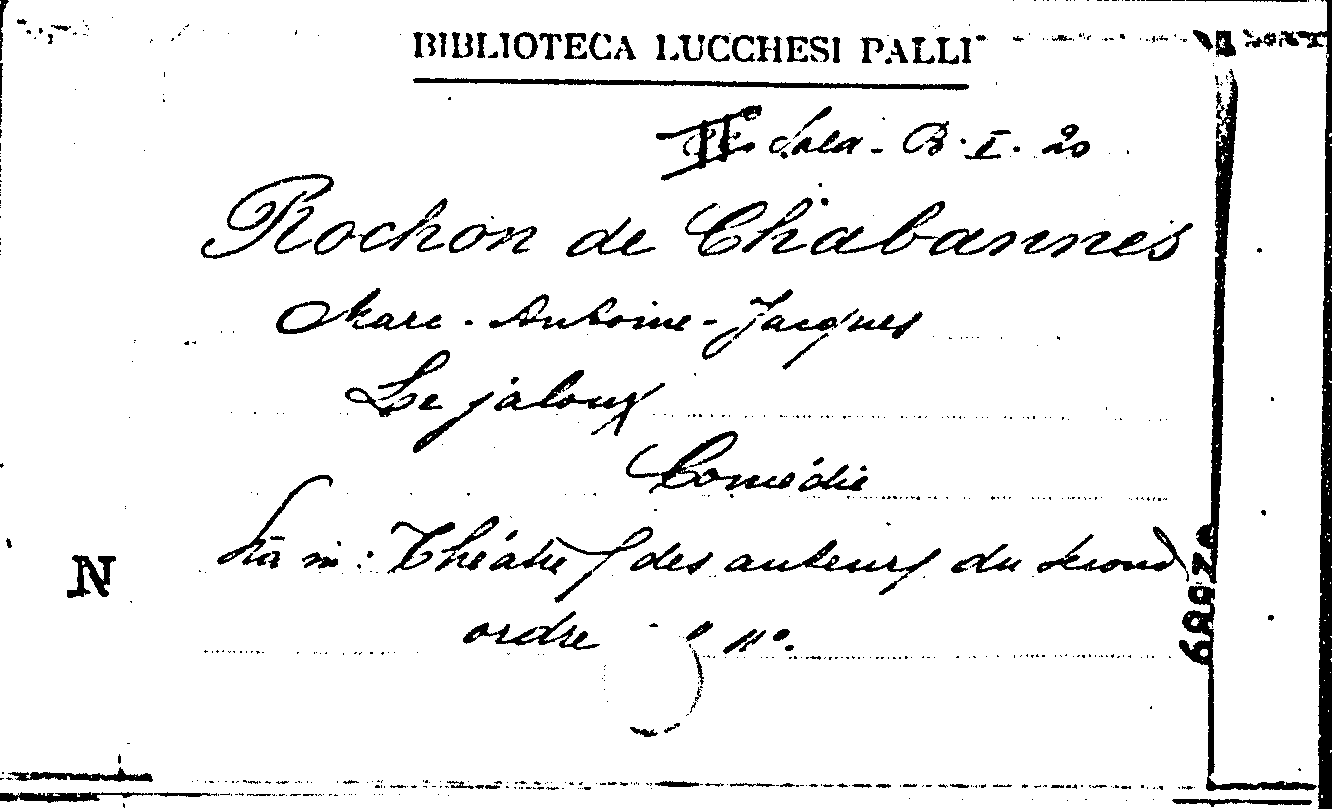 BIBLIOTECA LUCCHESI PALLI
II. Sala - B. I. 20
Rochon de Chabannes
Marc-Antoine-Jacques
Le jaloux
Comédie
Sta in: Théâtre des auteurs du second
N
ordre
11º.